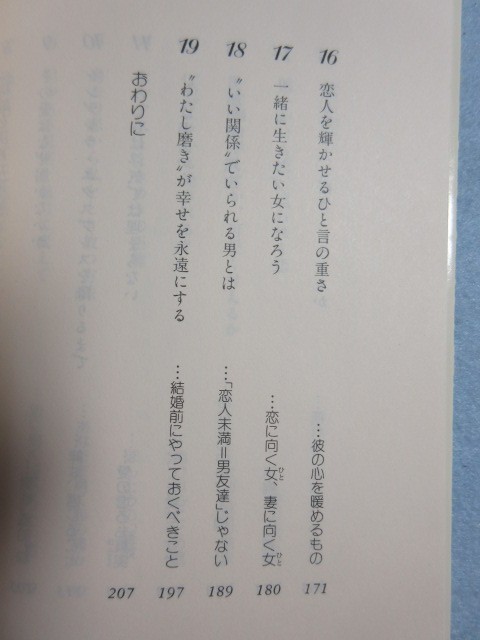 16 恋人を輝かせるひと言の重さ …彼の心を暖めるもの 171
17 一緒に生きたい女になろう …恋に向く女、妻に向く女 180
ひと ひと
18 “いい関係”でいられる男とは …「恋人未満=男友達」じゃない 189
19 “わたし磨き”が幸せを永遠にする …結婚前にやっておくべきこと 197
おわりに 207